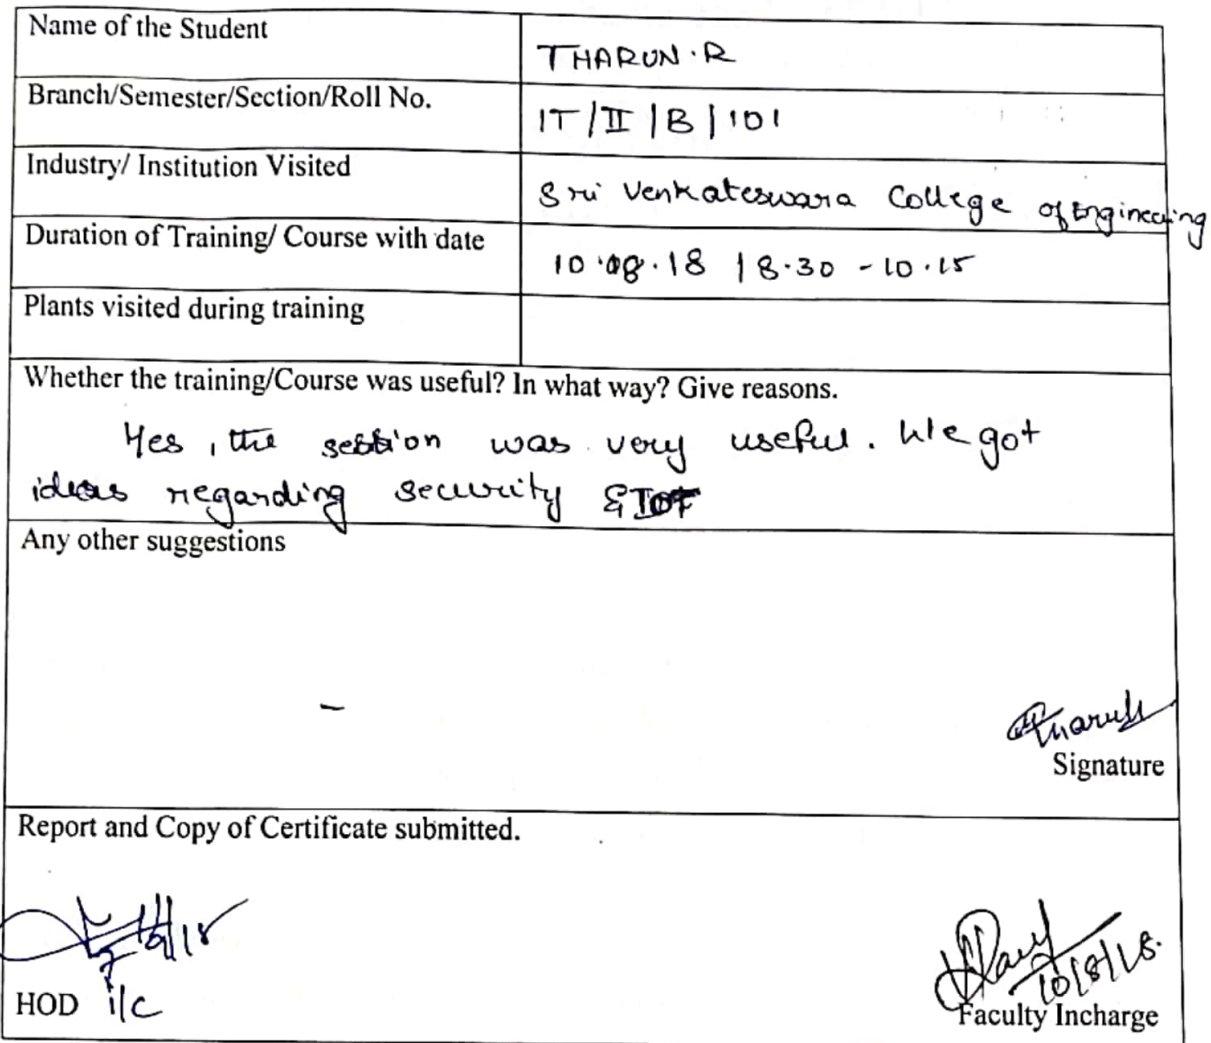 Name of the Student
THARUN.R
Branch/Semester/Section/Roll No.
IT/II/B/101
Industry/ Institution Visited
Sri Venkateswara College of Engineering
Duration of Training/ Course with date
10.08.18 / 8.30 - 10.15
Plants visited during training
Whether the training/Course was useful? In what way? Give reasons.
Yes, the session was very useful. We got
ideas regarding security & IOT
Any other suggestions
-
Signature
Report and Copy of Certificate submitted.
10/8/18.
HOD i/c
Faculty Incharge